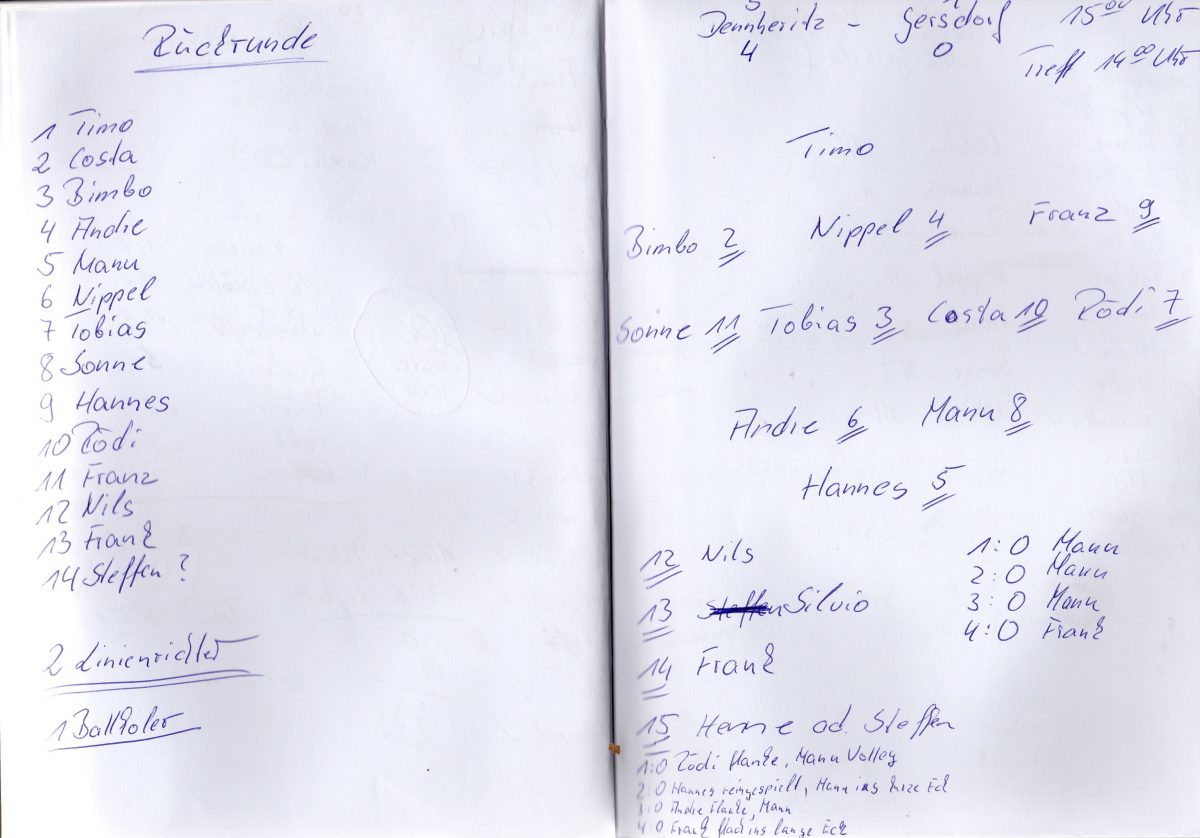 Rückrunde
1 Timo
2 Costa
3 Bimbo
4 Andre
5 Manu
6 Nippel
7 Tobias
8 Sonne
9 Hannes
10 Rödi
11 Franz
12 Nils
13 Frank
14 Steffen ?
2 Linienrichter
1 Ballholer
Dennheritz - Gersdorf 15⁰⁰ Uhr
4 0 Treff 14⁰⁰ Uhr
Timo
Bimbo 2 Nippel 4 Franz 9
Sonne 11 Tobias 3 Costa 10 Rödi 7
Andre 6 Manu 8
Hannes 5
12 Nils
13 Steffen Silvio
14 Frank
15 Hanne od. Steffen
1:0 Manu
2:0 Manu
3:0 Manu
4:0 Frank
1:0 Rödi Flanke, Manu Volley
2:0 Hannes reingespielt, Manu ins kurze Eck
3:0 Andre Flanke, Manu
4:0 Frank flach ins lange Eck